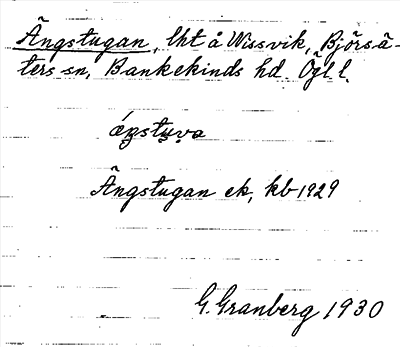 Ängstugan, lht å Wissvik, Björsä-
ters sn, Bankekinds hd. Ögl. l.
Ängstugan ek, kb 1929
G. Granberg 1930